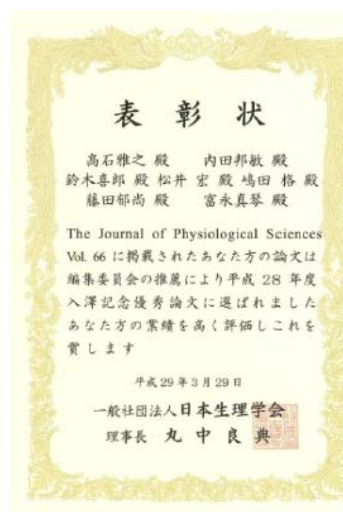 表彰状
髙石雅之 殿 内田邦敏 殿
鈴木喜郎 殿 松井 宏 殿 嶋田 格 殿
藤田郁尚 殿 富永真琴 殿
The Journal of Physiological Sciences
Vol. 66 に掲載されたあなた方の論文は
編集委員会の推薦により平成 28 年度
入澤記念優秀論文に選ばれました
あなた方の業績を高く評価しこれを
賞します
平成29年3月29日
一般社団法人日本生理学会
理事長 丸中良典